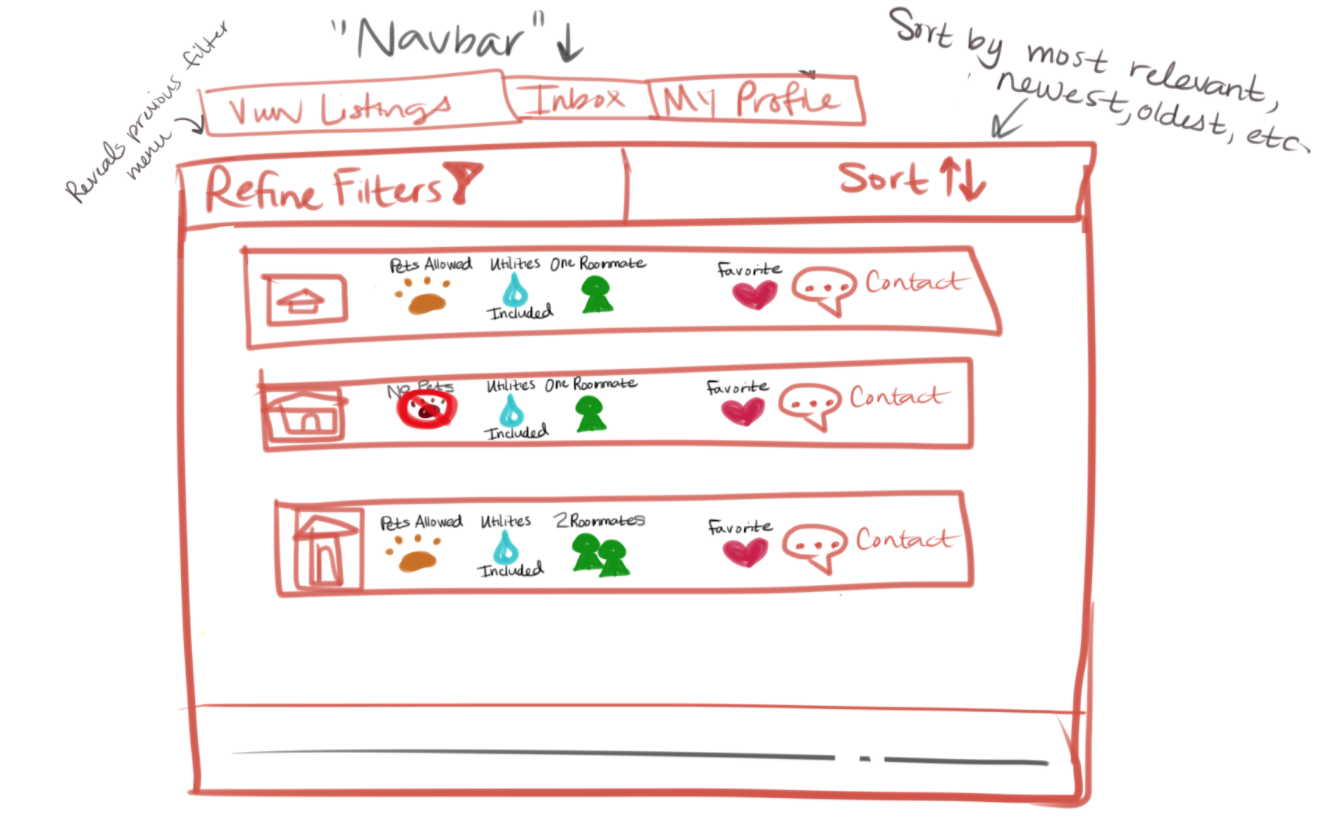 "Navbar"
Sort by most relevant,
newest, oldest, etc.
Reveals previous filter
menu
View Listings
Inbox
My Profile
Refine Filters
Sort
Pets Allowed
Utilities
Included
One Roommate
Favorite
Contact
No Pets
Utilities
Included
One Roommate
Favorite
Contact
Pets Allowed
Utilities
Included
2 Roommates
Favorite
Contact